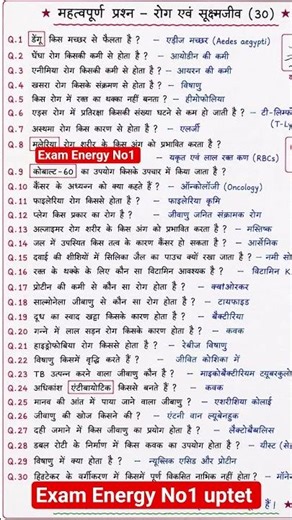 ★ महत्वपूर्ण प्रश्न – रोग एवं सूक्ष्मजीव (30) ★
Q.1 डेंगू किस मच्छर से फैलता है ? – एडीज मच्छर (Aedes aegypti)
Q.2 घेंघा रोग किसकी कमी से होता है ? – आयोडीन की कमी
Q.3 एनीमिया रोग किसकी कमी से होता है ? – आयरन की कमी
Q.4 खसरा रोग किसके संक्रमण से होता है ? – विषाणु
Q.5 किस रोग में रक्त का थक्का नहीं बनता ? – हीमोफीलिया
Q.6 एड्स रोग में प्रतिरक्षा किसकी संख्या घटने से कम हो जाती है ? – टी-लिम्फो
(T-Ly
Q.7 अस्थमा रोग किस कारण से होता है ? – एलर्जी
Q.8 मलेरिया रोग शरीर के किस अंग को प्रभावित करता है ?
Exam Energy No1
– यकृत एवं लाल रक्त कण (RBCs)
Q.9 कोबाल्ट-60 का उपयोग किसके उपचार में किया जाता है ?
Q.10 कैंसर के अध्ययन को क्या कहते हैं ? – ऑन्कोलॉजी (Oncology)
Q.11 फाइलेरिया रोग किससे होता है ? – फाइलेरिया कृमि
Q.12 प्लेग किस प्रकार का रोग है ? – जीवाणु जनित संक्रामक रोग
Q.13 अल्जाइमर रोग शरीर के किस अंग को प्रभावित करता है ? – मस्तिष्क
Q.14 जल में उपस्थित किस तत्व के कारण कैंसर हो सकता है ? – आर्सेनिक
Q.15 दवाई की शीशियों में सिलिका जैल का पाउच क्यों रखा जाता है ? – नमी सो
Q.16 रक्त के थक्के के लिए कौन सा विटामिन आवश्यक है ? – विटामिन K
Q.17 प्रोटीन की कमी से कौन सा रोग होता है ? – क्वाशेओरकर
Q.18 साल्मोनेला जीवाणु से कौन सा रोग होता है ? – टायफाइड
Q.19 दूध का स्वाद खट्टा किसके कारण होता है ? – बैक्टीरिया
Q.20 गन्ने में लाल सड़न रोग किसके कारण होता है ? – कवक
Q.21 हाइड्रोफोबिया रोग किससे होता है ? – रेबीज विषाणु
Q.22 विषाणु किसमें वृद्धि करते हैं ? – जीवित कोशिका में
Q.23 TB उत्पन्न करने वाला जीवाणु कौन है ? – माइकोबैक्टीरियम ट्यूबरकुलो
Q.24 अधिकांश एंटीबायोटिक किससे बनते हैं ? – कवक
Q.25 मानव की आंत में पाया जाने वाला जीवाणु ? – एशरीशिया कोलाई
Q.26 जीवाणु की खोज किसने की ? – एंटनी वान ल्यूवेनहुक
Q.27 दही जमाने में किस जीवाणु का प्रयोग होता है ? – लैक्टोबैसिलस
Q.28 डबल रोटी के निर्माण में किस कवक का उपयोग होता है ? – यीस्ट (से
Q.29 विषाणु में क्या होता है ? – न्यूक्लिक एसिड और प्रोटीन
Q.30 व्हिटेकर के वर्गीकरण में किसमें पूर्ण विकसित नाभिक नहीं होता ? – मोने
Exam Energy No1 uptet